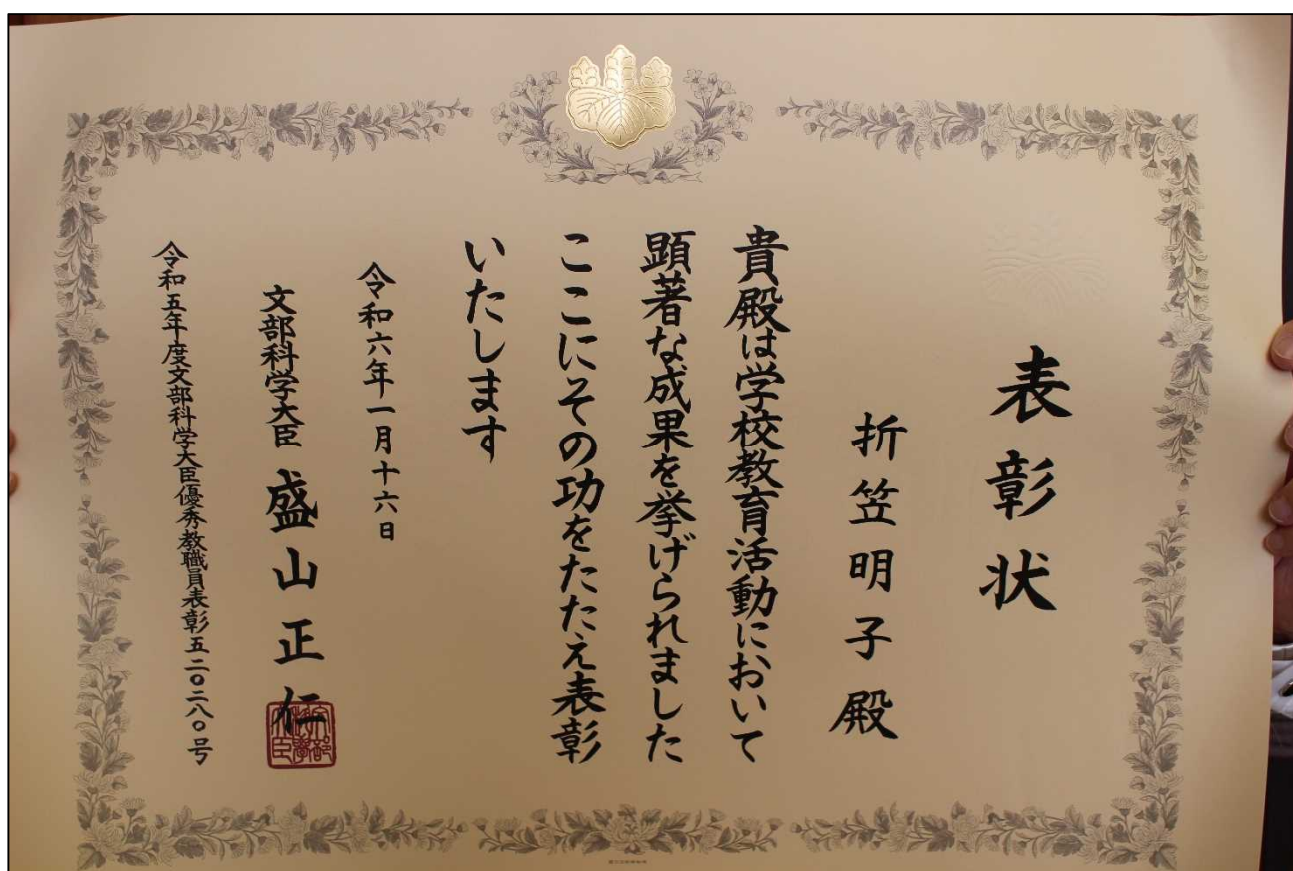 表彰状
折笠明子殿
貴殿は学校教育活動において
顕著な成果を挙げられました
ここにその功をたたえ表彰
いたします
令和六年一月十六日
文部科学大臣 盛山正仁
令和五年度文部科学大臣優秀教職員表彰五二〇二八〇号